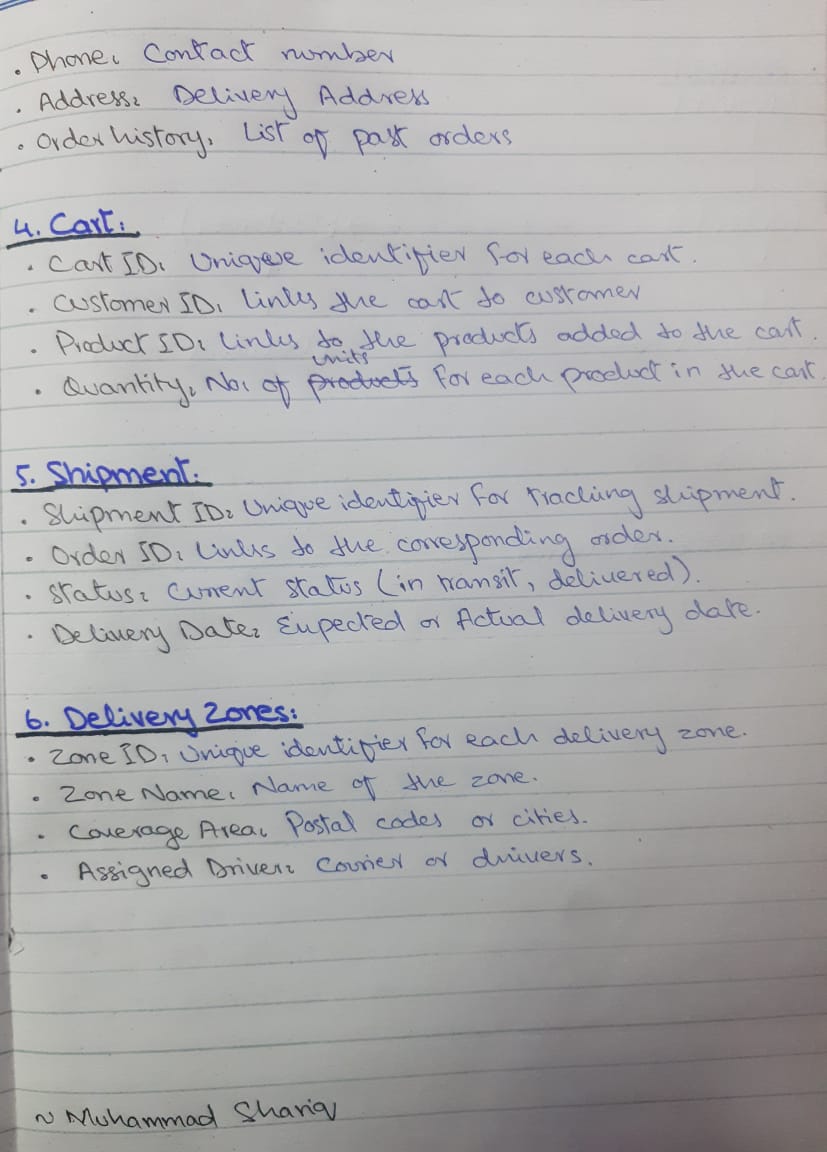 . Phone: Contact number
. Address: Delivery Address
. Order history: List of past orders
4. Cart:
. Cart ID: Unique identifier for each cart.
. Customer ID: Links the cart to customer
. Product ID: Links to the products added to the cart.
units
. Quantity: No: of products for each product in the cart.
5. Shipment:
. Shipment ID: Unique identifier for tracking shipment.
. Order ID: Links to the corresponding order.
. Status: Current status (in transit, delivered).
. Delivery Date: Expected or Actual delivery date.
6. Delivery Zones:
. Zone ID: Unique identifier for each delivery zone.
. Zone Name: Name of the zone.
. Coverage Area: Postal codes or cities.
. Assigned Driver: Courier or drivers.
~ Muhammad Shariq